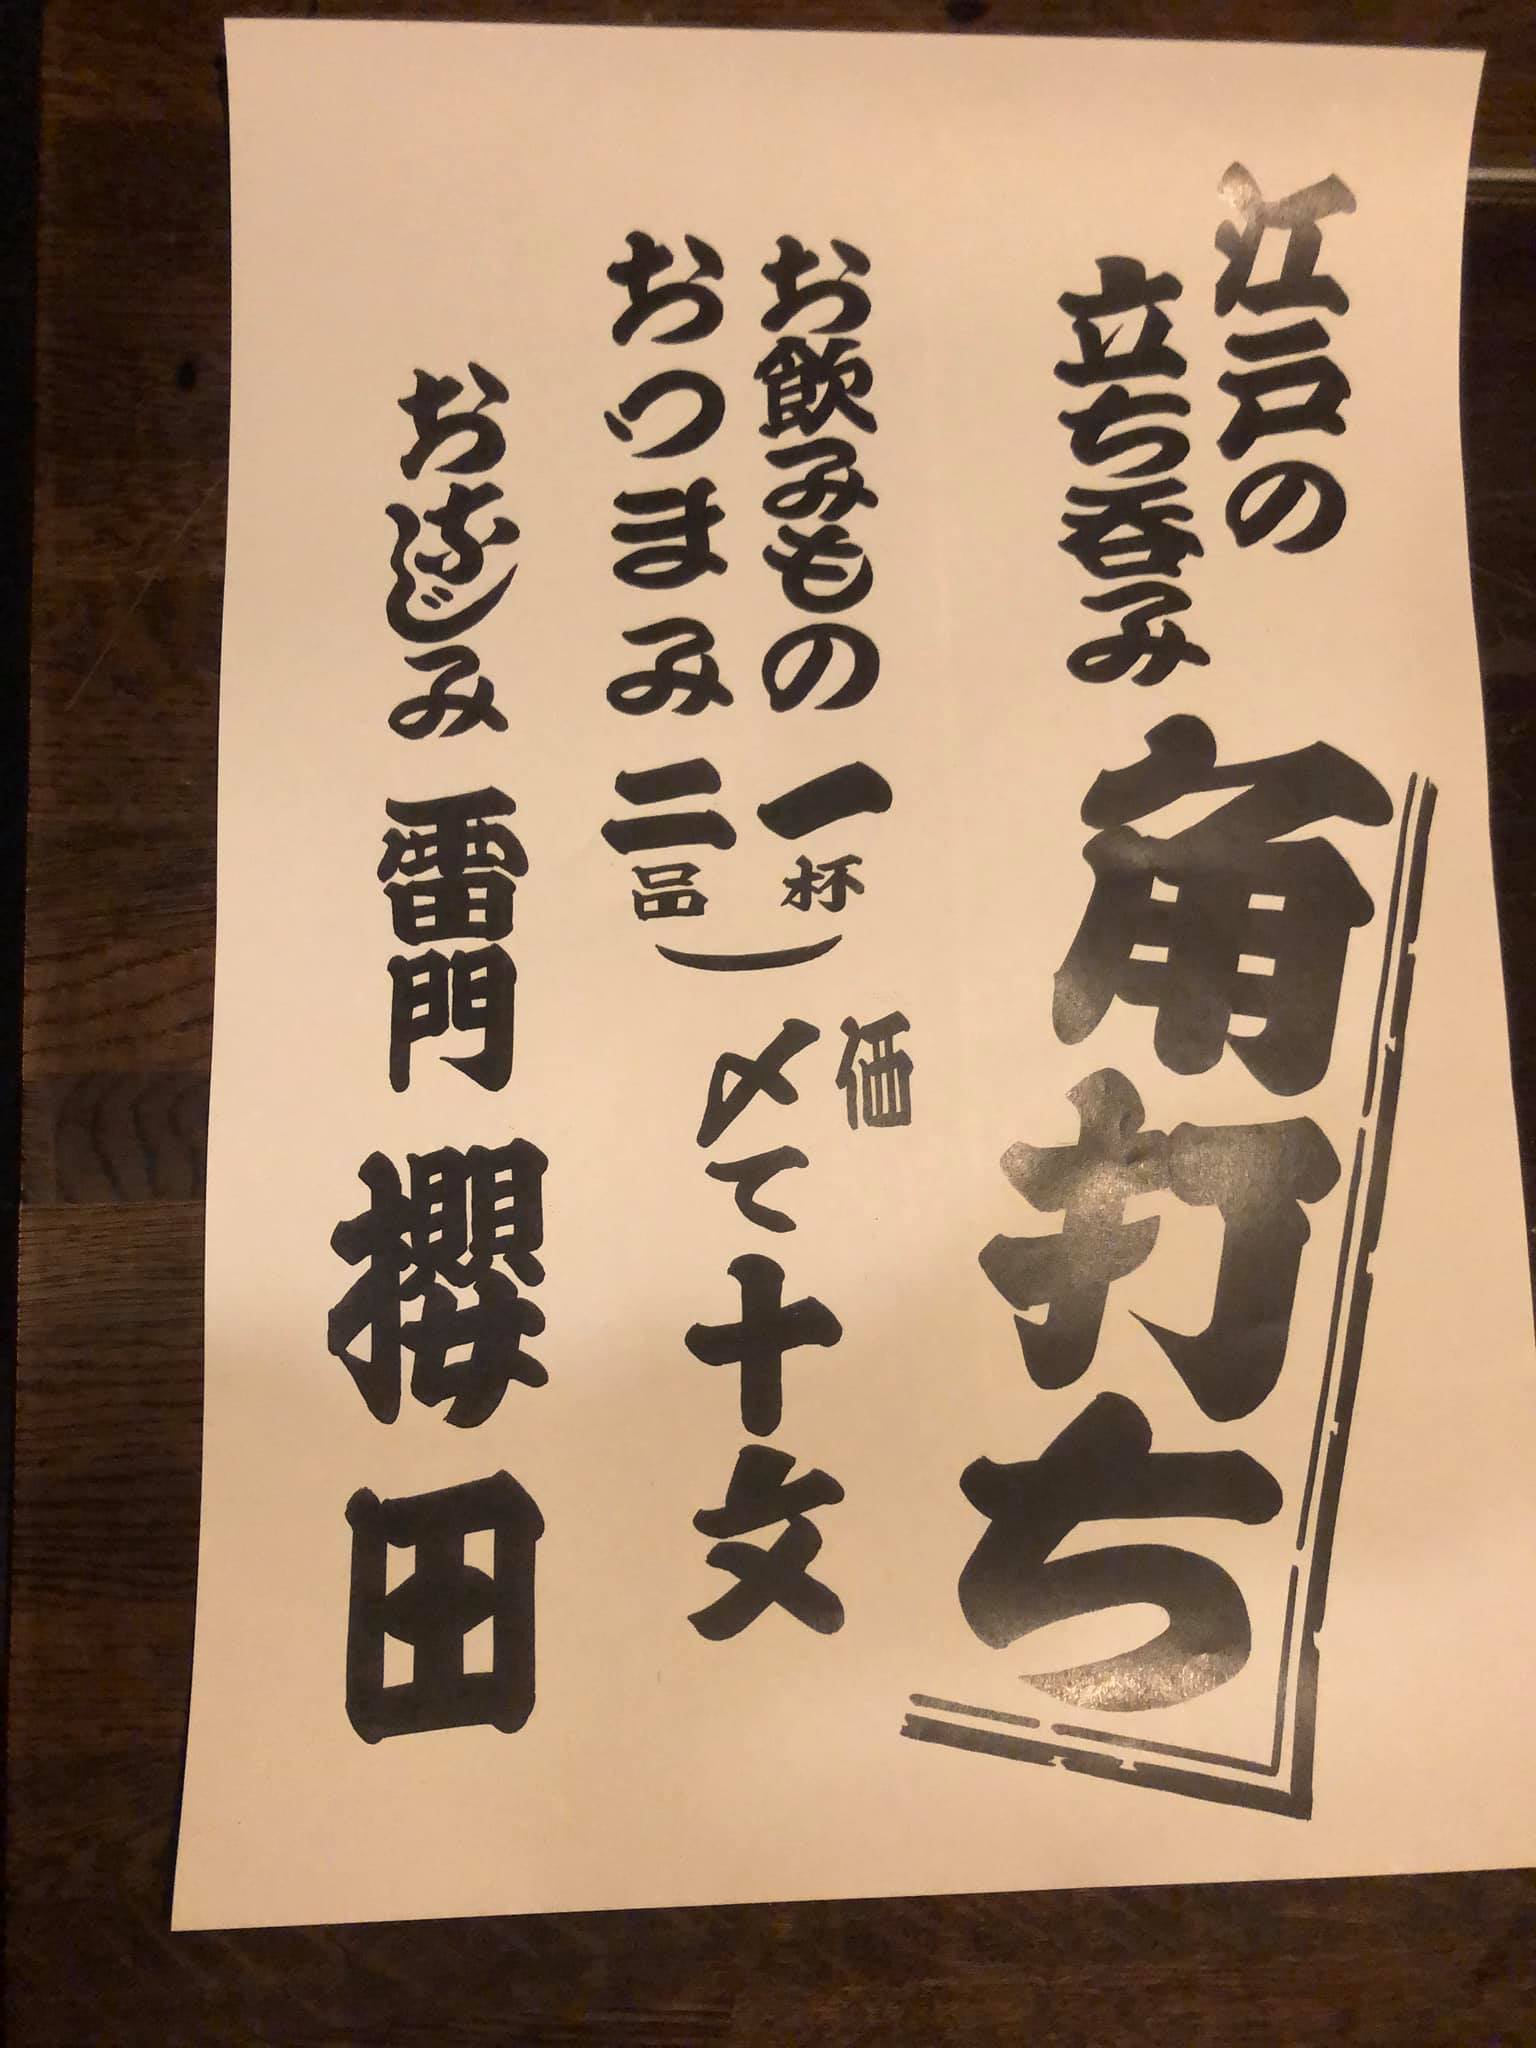 江戸の
立ち呑み
角打ち
お飲みもの一杯
おつまみ二品
価
〆て十文
おなじみ 雷門 櫻田